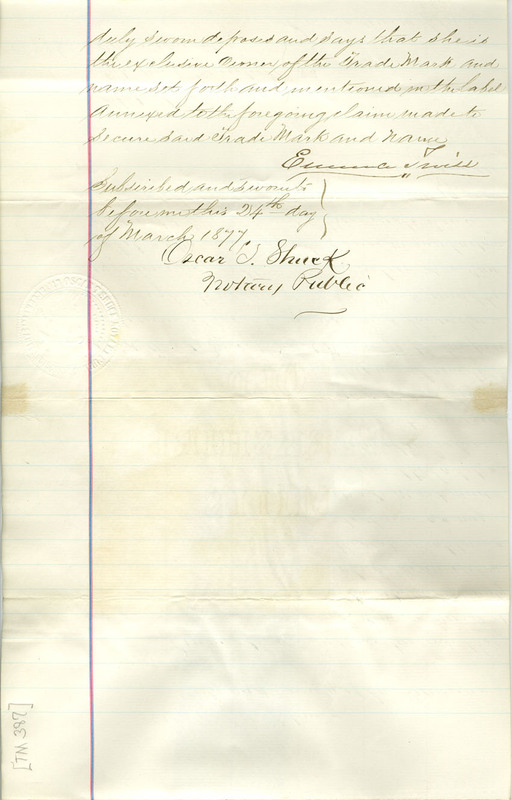 duly sworn deposes and says that she is
the exclusive owner of the Trade Mark and
name set forth and mentioned in the label
annexed to the foregoing claim made to
secure said Trade Mark and name
Emma
Subscribed and sworn to
before me this 24th day
of March 1877
Oscar T. Shuck
Notary Public
[TM 387]